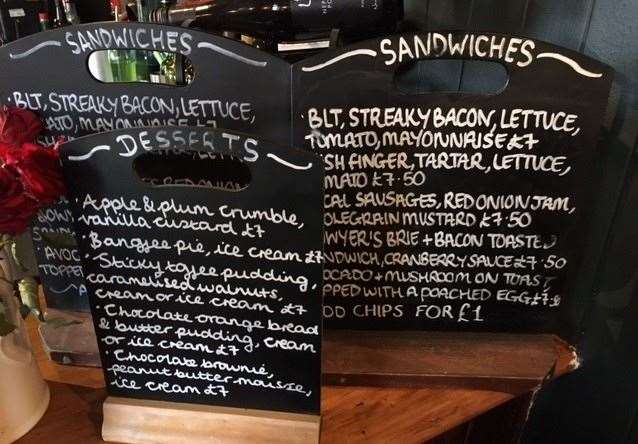 SANDWICHES
BLT, STREAKY BACON, LETTUCE,
MAYONNAISE £7
DESSERTS
· Apple & plum crumble,
vanilla custard £7
· Bangjee pie, ice cream £7
· Sticky toffee pudding,
caramelised walnuts,
cream or ice cream £7
· Chocolate orange bread
& butter pudding, cream
or ice cream £7
· Chocolate brownie,
peanut butter mousse,
ice cream £7
SANDWICHES
BLT, STREAKY BACON, LETTUCE,
TOMATO, MAYONNAISE £7
SH FINGER, TARTAR, LETTUCE,
MATO £7.50
CAL SAUSAGES, RED ONION JAM,
OLEGRAIN MUSTARD £7.50
WYER'S BRIE + BACON TOASTED
NDWICH, CRANBERRY SAUCE £7.50
OCADO + MUSHROOM ON TOAST
PPED WITH A POACHED EGG
OD CHIPS FOR £1